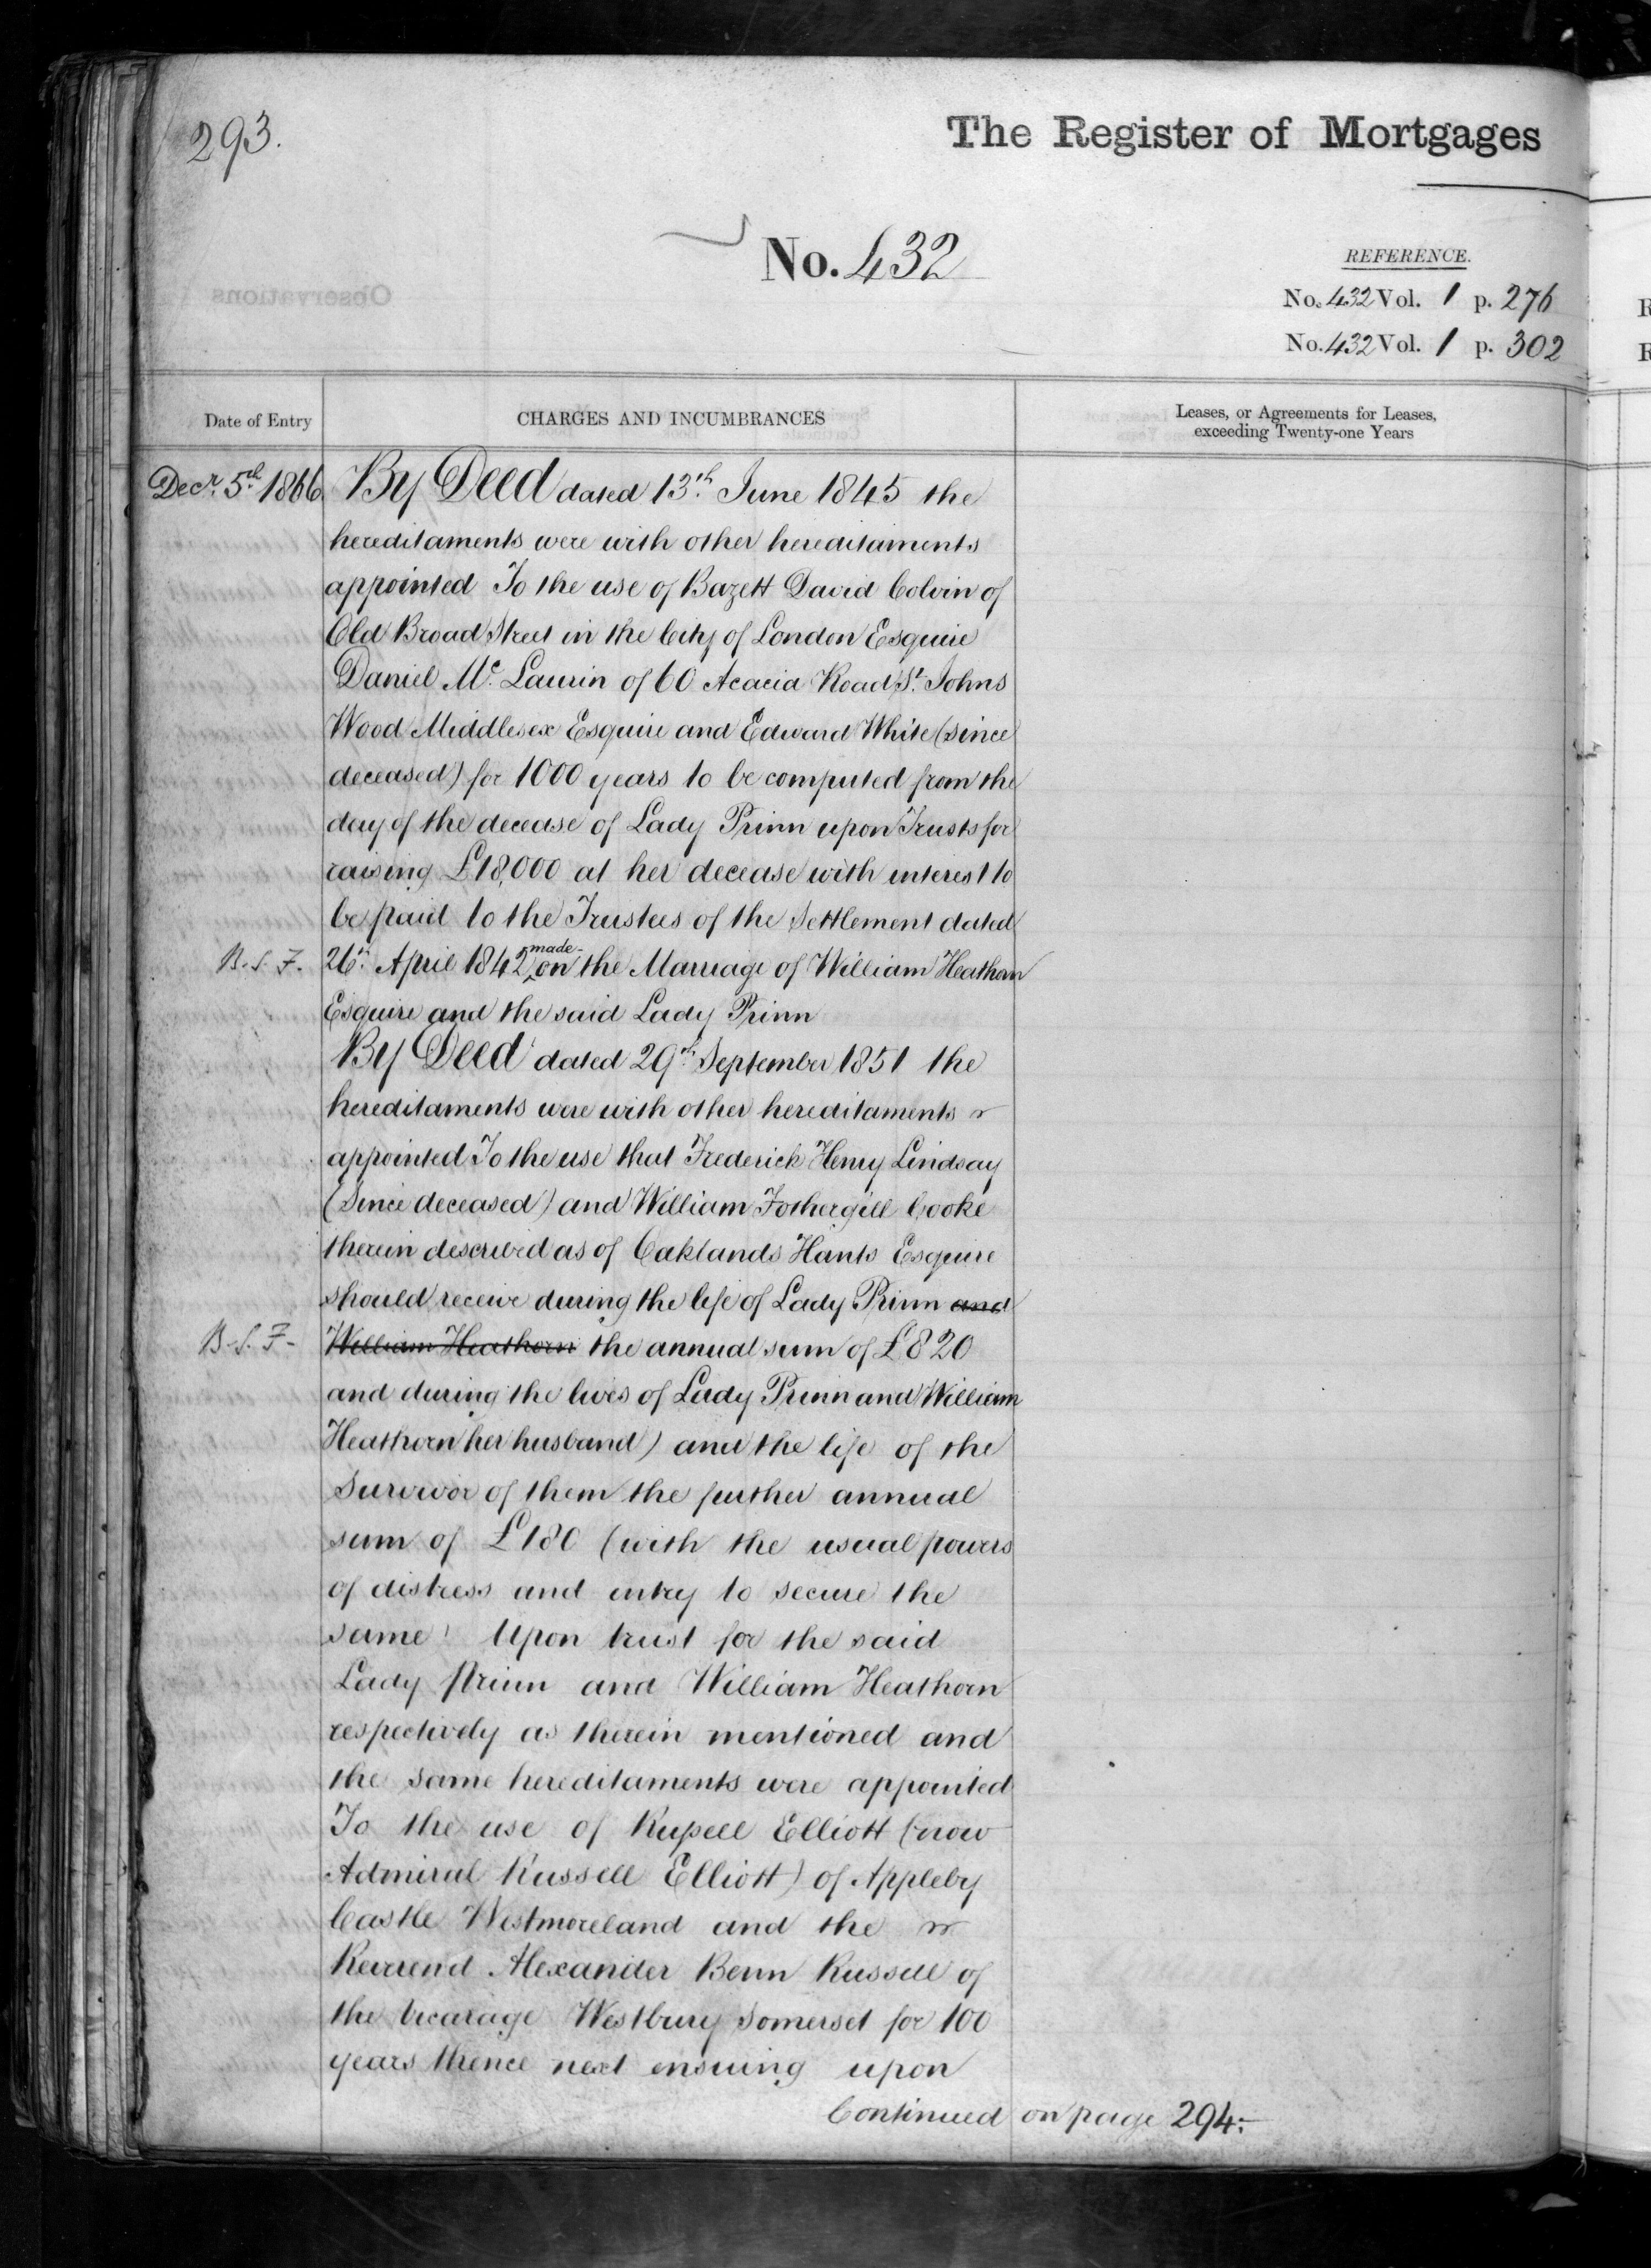 293.
The Register of Mortgages
No. 432
REFERENCE.
No. 432 Vol. 1 p. 276
No. 432 Vol. 1 p. 302
Observations
Date of Entry
CHARGES AND INCUMBRANCES
Leases, or Agreements for Leases,
exceeding Twenty-one Years
Decr. 5th 1866
By Deed dated 13th June 1845 the
hereditaments were with other hereditaments
appointed To the use of Bazett David Colvin of
Old Broad Street in the City of London Esquire
Daniel Mc. Laurin of 60 Acacia Road St. Johns
Wood Middlesex Esquire and Edward White (since
deceased) for 1000 years to be computed from the
day of the decease of Lady Prinn upon Trusts for
raising £18,000 at her decease with interest to
be paid to the Trustees of the Settlement dated
B.S.F. 26th April 1842 made on the Marriage of William Heathorn
Esquire and the said Lady Prinn
By Deed dated 29th September 1851 the
hereditaments were with other hereditaments
appointed To the use that Frederick Henry Lindsay
(Since deceased) and William Fothergill Cooke
therein described as of Oaklands Hants Esquire
should receive during the life of Lady Prinn and
B.S.F- William Heathorn the annual sum of £820
and during the lives of Lady Prinn and William
Heathorn her husband) and the life of the
Survivor of them the further annual
sum of £180 (with the usual powers
of distress and entry to secure the
same) Upon trust for the said
Lady Prinn and William Heathorn
respectively as therein mentioned and
the same hereditaments were appointed
To the use of Russell Elliott (now
Admiral Russell Elliott) of Appleby
Castle Westmoreland and the
Reverend Alexander Benn Russell of
the Vicarage Westbury Somerset for 100
years thence next ensuing upon
Continued on page 294:-